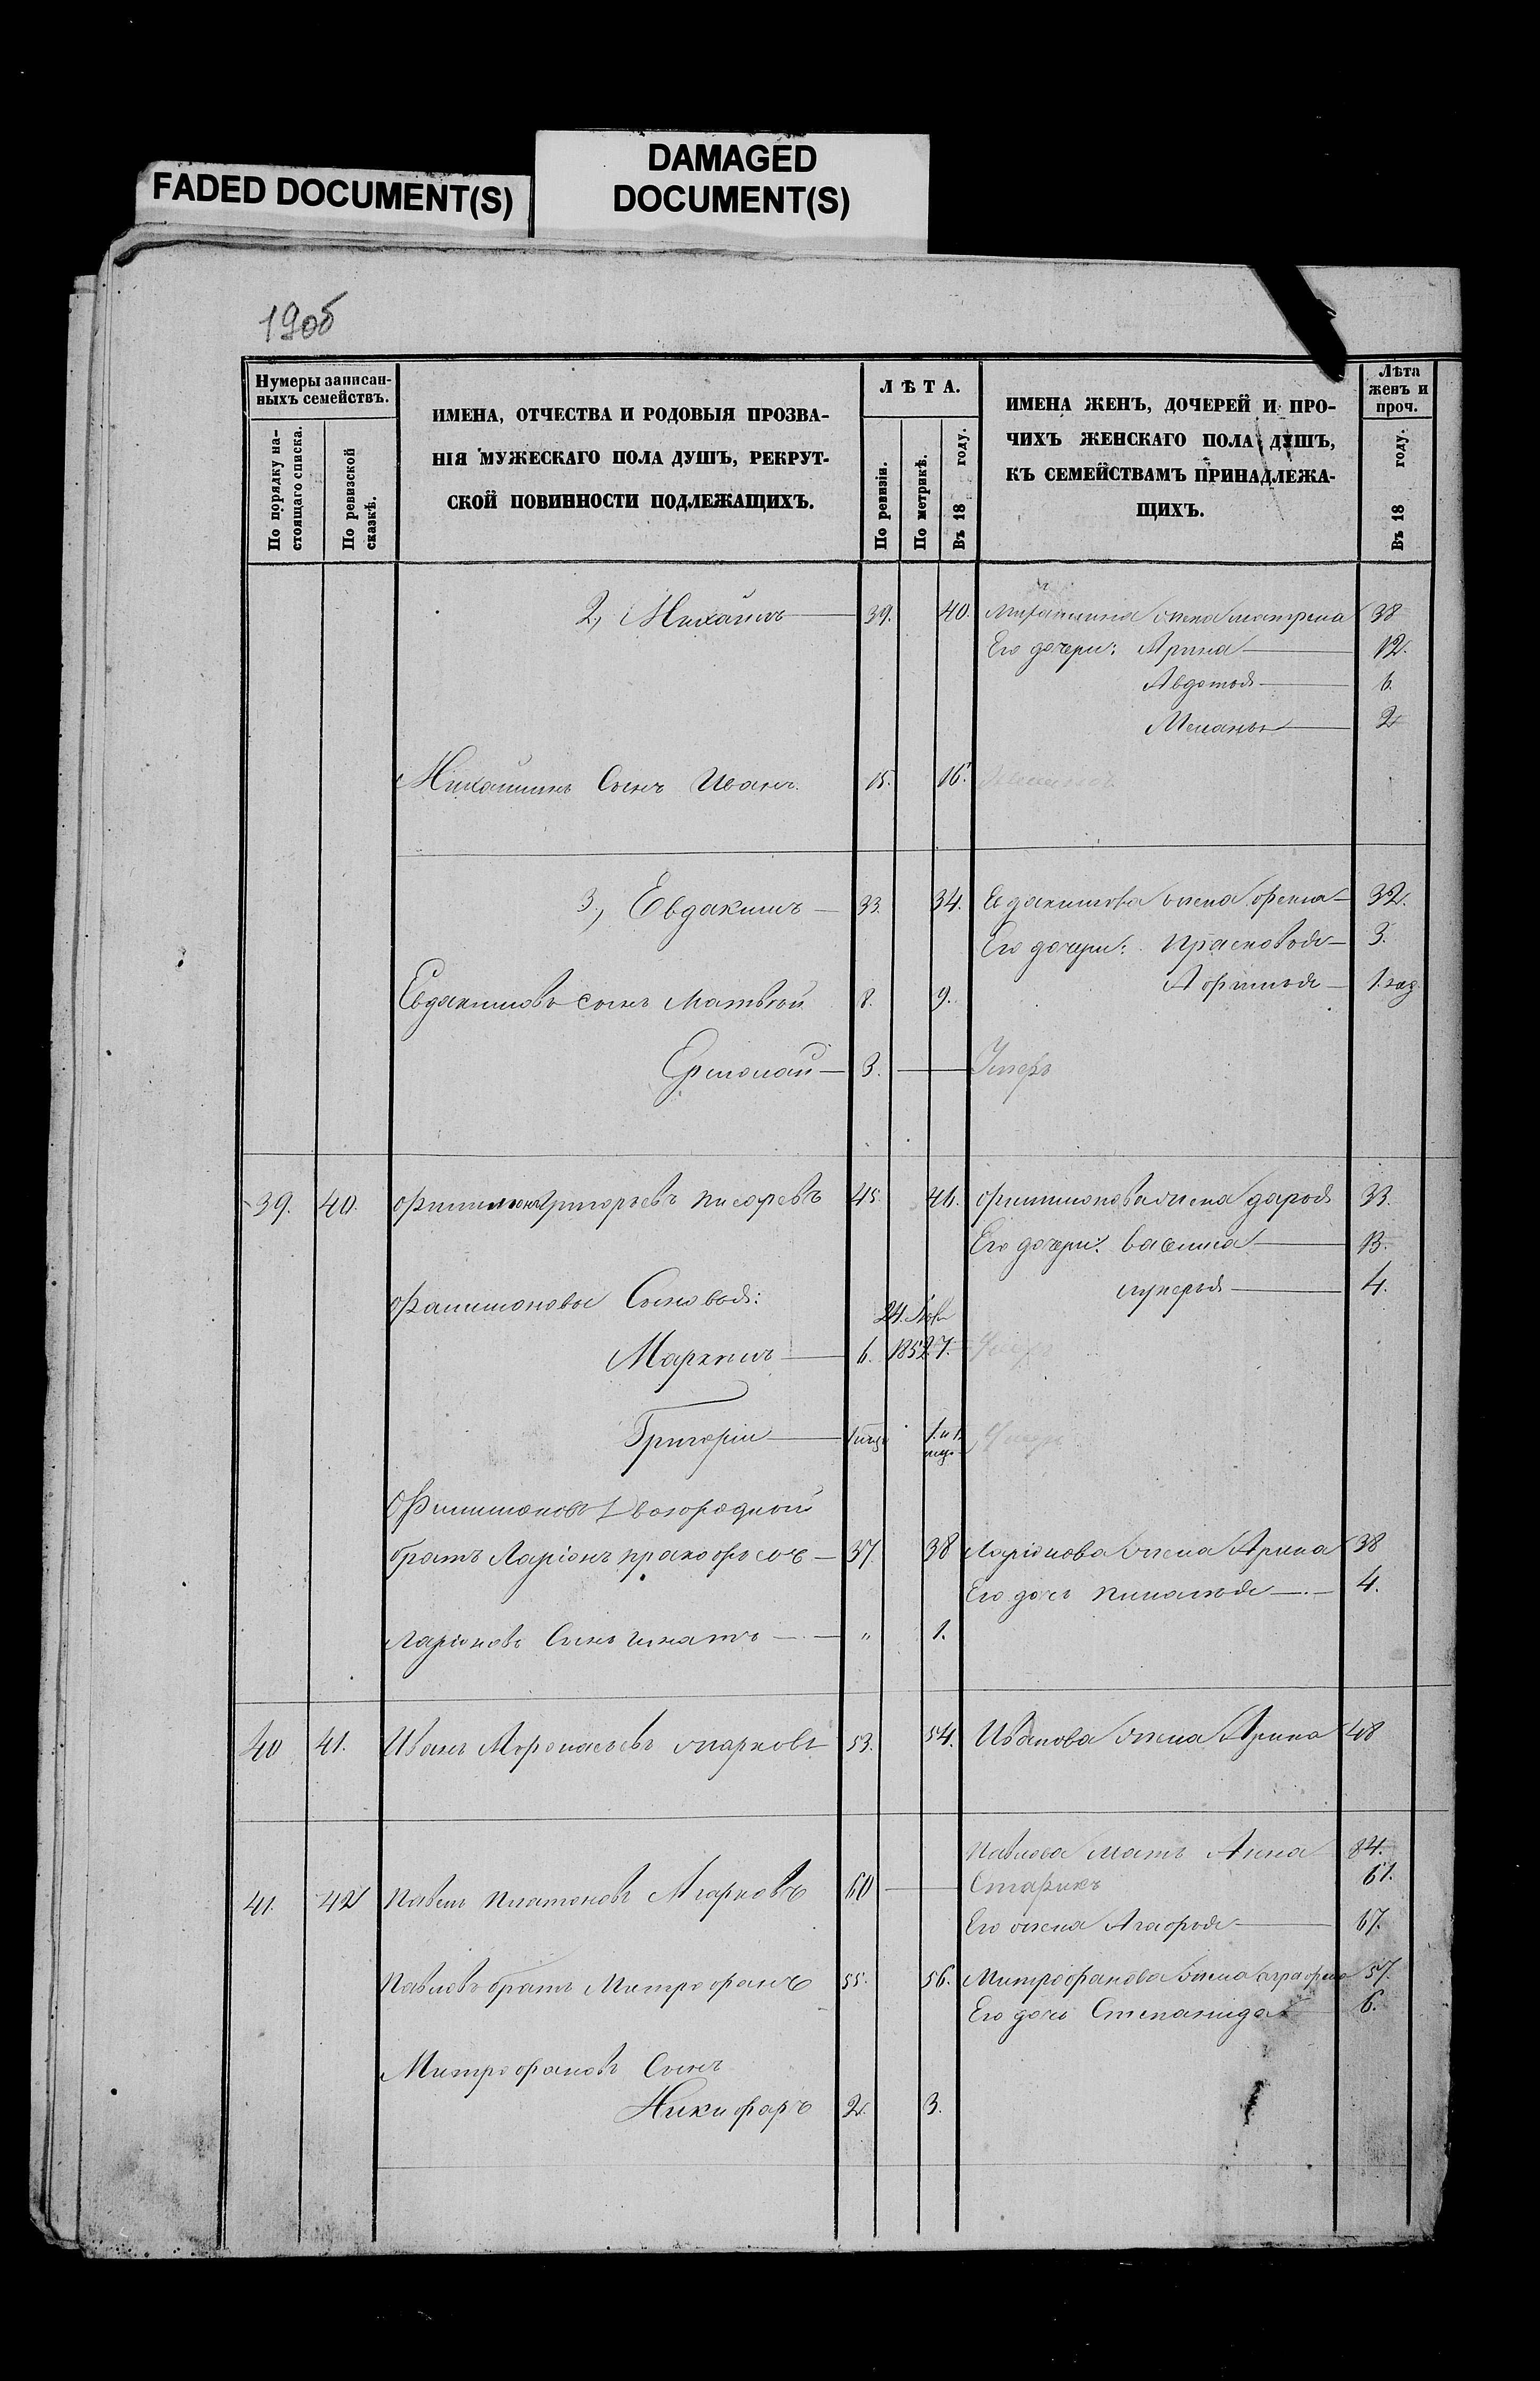 FADED DOCUMENT(S)
DAMAGED
DOCUMENT(S)
19об
Нумеры записан-
ныхъ семействъ.
По порядку на-
стоящаго списка.
По ревизской
сказкѣ.
ИМЕНА, ОТЧЕСТВА И РОДОВЫЯ ПРОЗВА-
НІЯ МУЖЕСКАГО ПОЛА ДУШЪ, РЕКРУТ-
СКОЙ ПОВИННОСТИ ПОДЛЕЖАЩИХЪ.
ЛѢТА.
По ревизіи.
По метрикѣ.
Въ 18 году.
ИМЕНА ЖЕНЪ, ДОЧЕРЕЙ И ПРО-
ЧИХЪ ЖЕНСКАГО ПОЛА ДУШЪ,
КЪ СЕМЕЙСТВАМЪ ПРИНАДЛЕЖА-
ЩИХЪ.
Лѣта
женъ и
проч.
Въ 18 году.
2, Михаилъ 39. 40. Михаилина жена матрена 38
Его дочери: Арина 12.
Авдотья 6.
Меланья 2
Михаилинъ Сынъ Иванъ. 15. 16.
3, Евдакимъ 33. 34. Евдакимова жена 32.
Его дочери: Прасковья 3.
Афимья 1. год
Евдакимовъ сынъ Матвѣй 8. 9.
Ермолай 3. Умеръ
39. 40. Филимонъ Григорьевъ писаревъ 45. 46. Филимонова жена дарья 33.
Его дочери: василиса 13.
лукерья 4.
Филимоновы Сыновья:
24. Ноя
Маркилъ 6. 1852 7. Умеръ
Григорій Умеръ
Филимоновъ Двоюродной
братъ Ларіонъ пракофьевъ 37. 38 Ларіонова жена Арина 38
Его дочь 4.
Ларіоновъ Сынъ игнатъ " 1.
40 41. Иванъ Афонасьевъ 53. 54. Иванова жена Арина 48
Павлова мать Анна 84.
41. 42 Павелъ Платоновъ 60 Старикъ 61.
Его жена Агафья 67.
Павловъ братъ Митрофанъ 55. 56. Митрофанова жена аграфена 57.
Его дочь Степанида 6.
Митрофановъ Сынъ
Никифаръ 2. 3.